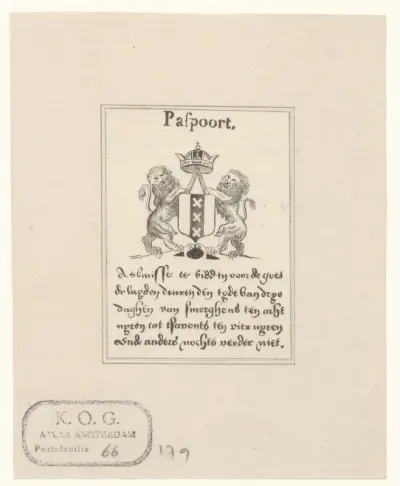 Paſpoort.
Aelmisse te bidden voor de goes
de luyden deur den tydt van drye
daghen van smorghens ten acht
uyren tot tſavonts ten vier uyren
ende anders nochte verder niet.
K. O. G.
ATLAS AMSTERDAM
Portefeuille 66
179